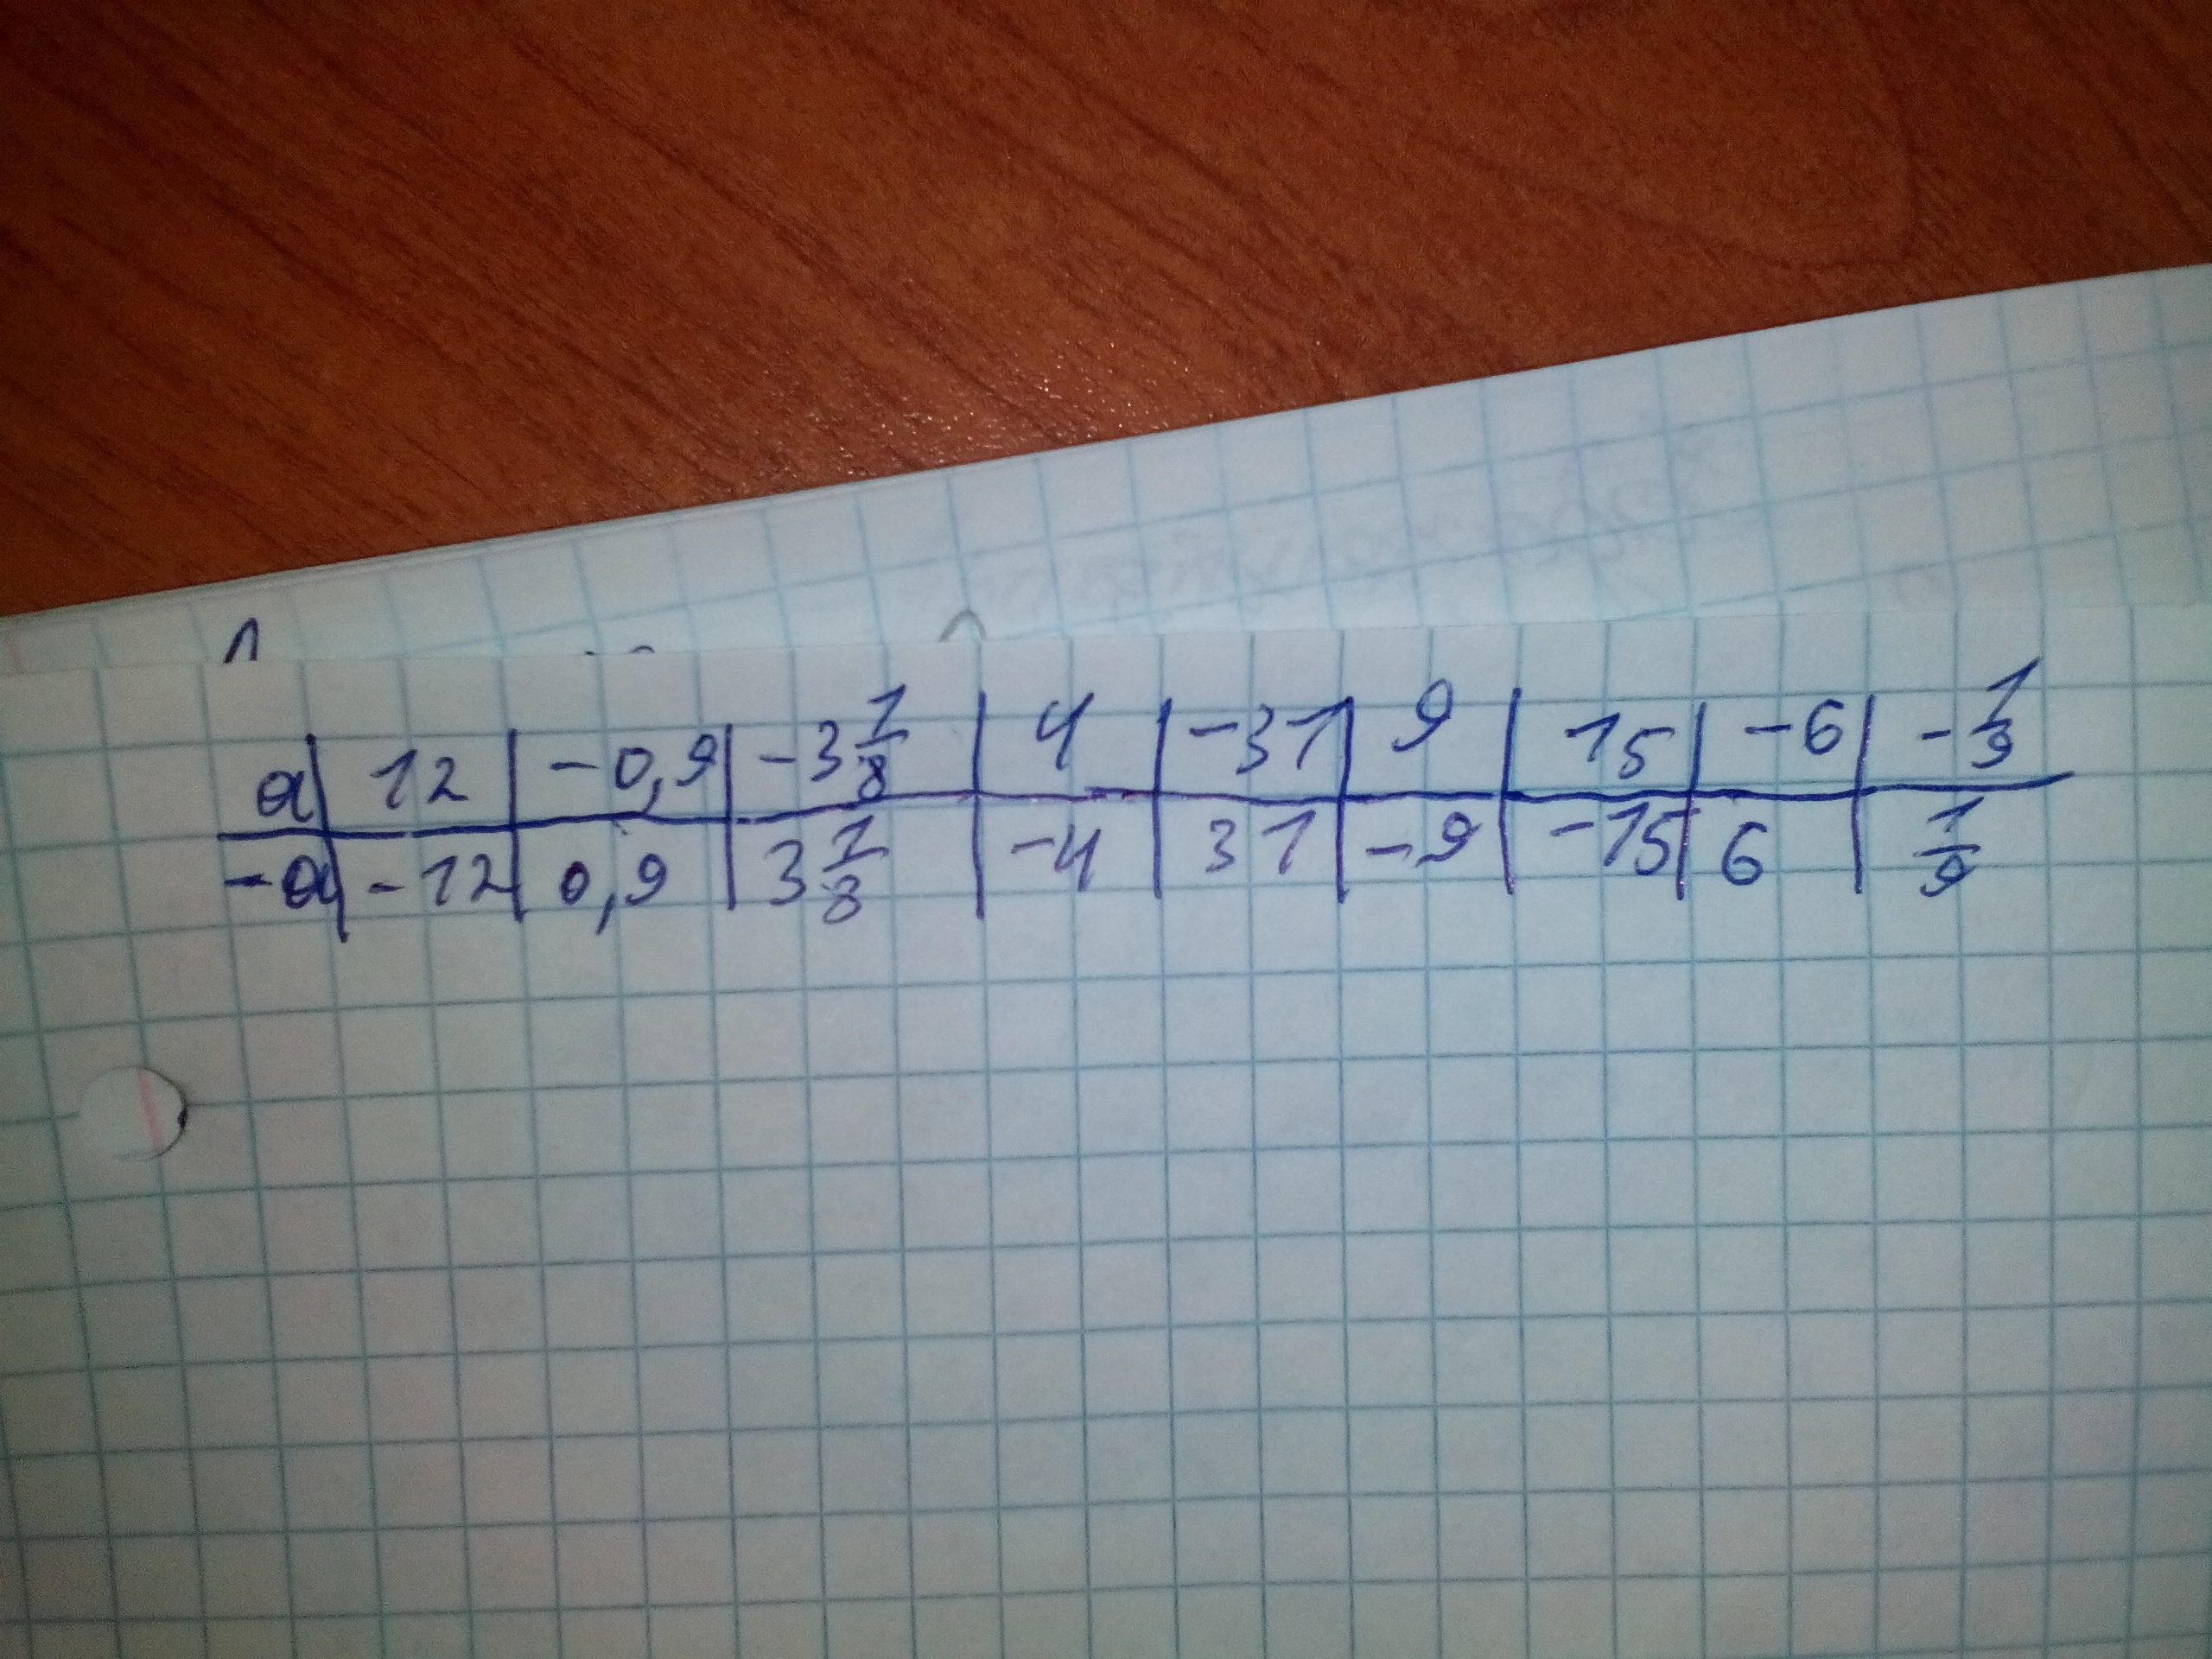 a | 12 | -0,9 | -3 1/8 | 4 | -31 | 9 | 15 | -6 | -1/9
-a | -12 | 0,9 | 3 1/8 | -4 | 31 | -9 | -15 | 6 | 1/9